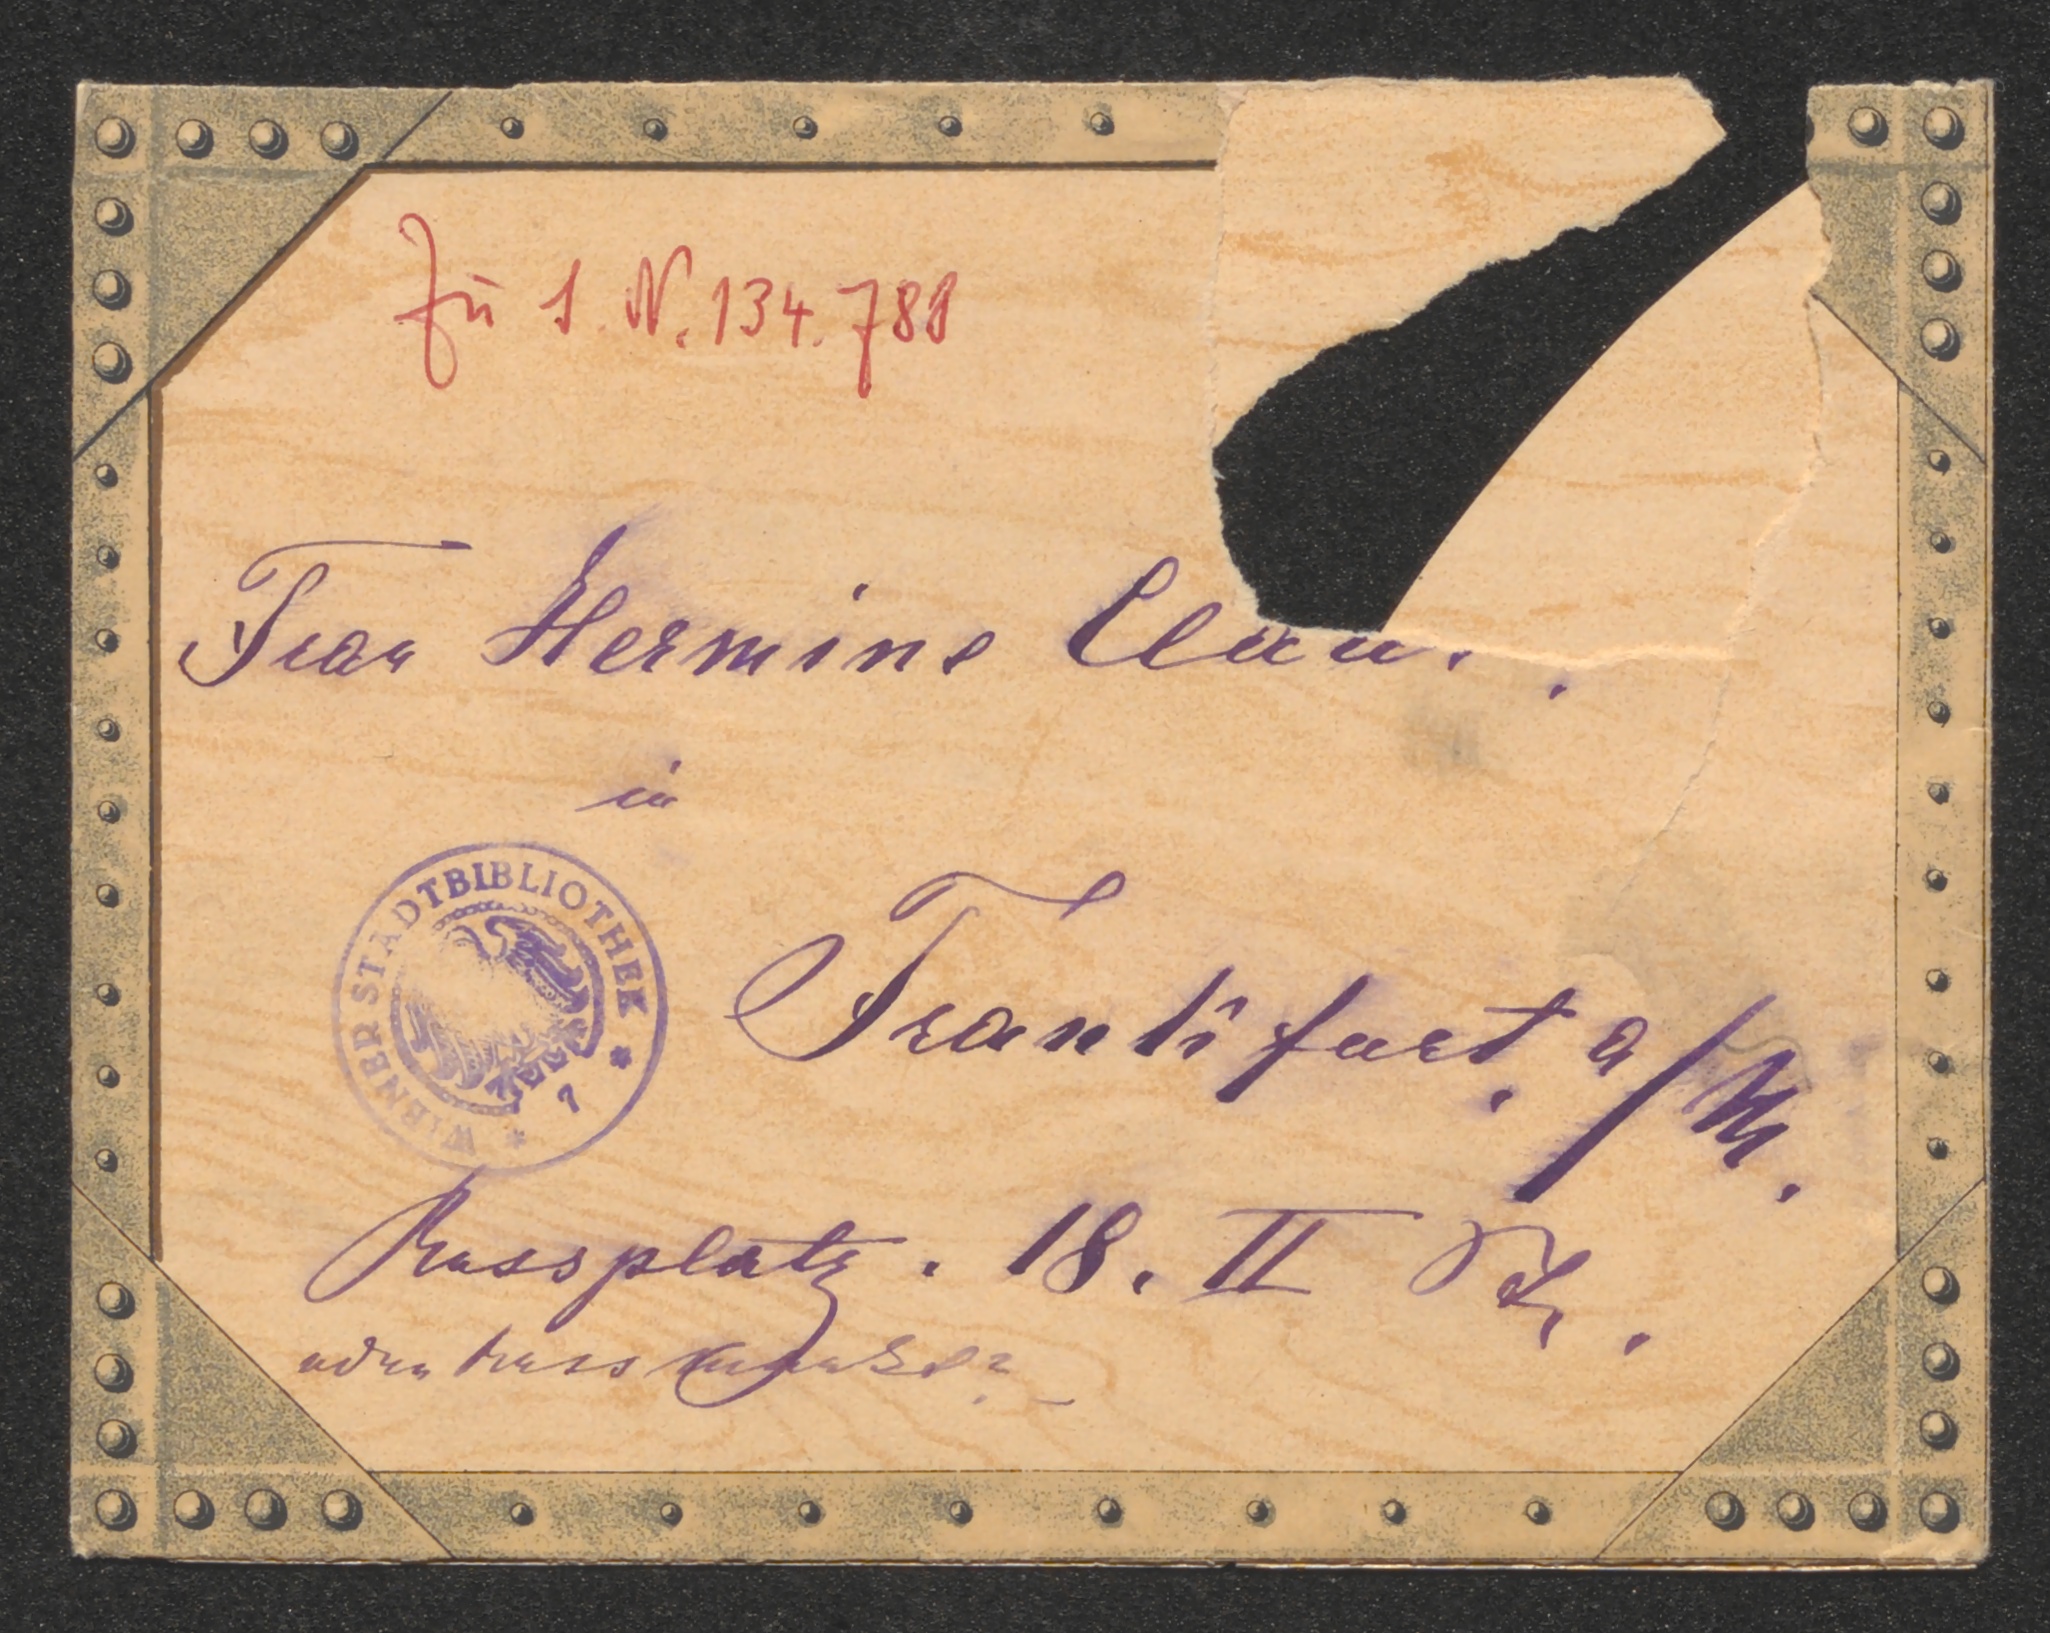 Zu I. N. 134.788
Frau Hermine Clau
in
WIENER STADTBIBLIOTHEK * 7 *
Frankfurt a/M.
Rossplatz. 18. II St.
oder Ross